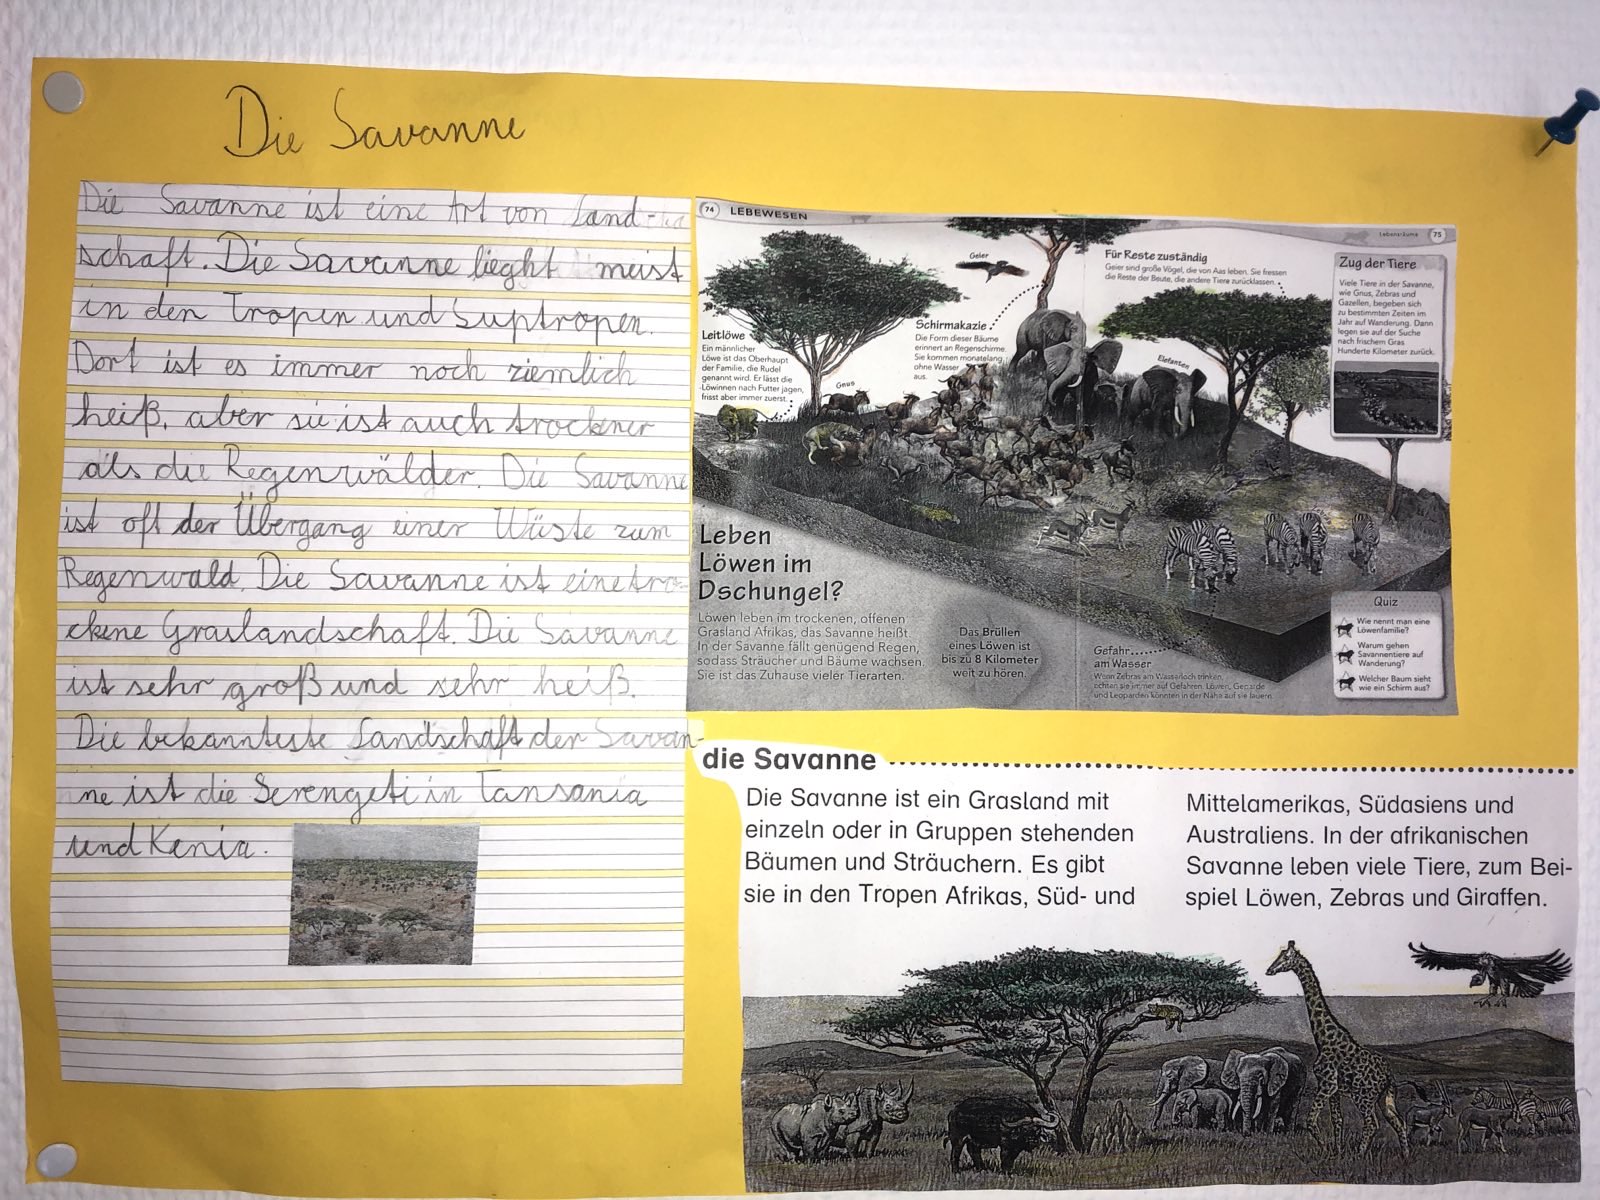 Die Savanne
Die Savanne ist eine Art von Land-
schaft. Die Savanne lieght meist
in den Tropen und Suptropen.
Dort ist es immer noch ziemlich
heiß, aber sie ist auch trockener
als die Regenwälder. Die Savanne
ist oft der Übergang einer Wüste zum
Regenwald. Die Savanne ist eine tro-
ckene Graslandschaft. Die Savanne
ist sehr groß und sehr heiß.
Die bekannteste Landschaft der Savan-
ne ist die Serengeti in Tansania
und Kenia.
74 LEBEWESEN
Lebensräume 75
Geier
Für Reste zuständig
Geier sind große Vögel, die von Aas leben. Sie fressen
die Reste der Beute, die andere Tiere zurücklassen.
Zug der Tiere
Viele Tiere in der Savanne,
wie Gnus, Zebras und
Gazellen, begeben sich
zu bestimmten Zeiten im
Jahr auf Wanderung. Dann
legen sie auf der Suche
nach frischem Gras
Hunderte Kilometer zurück.
Leitlöwe
Ein männlicher
Löwe ist das Oberhaupt
der Familie, die Rudel
genannt wird. Er lässt die
Löwinnen nach Futter jagen,
frisst aber immer zuerst.
Schirmakazie
Die Form dieser Bäume
erinnert an Regenschirme.
Sie kommen monatelang
ohne Wasser
aus.
Gnus
Elefanten
Leben
Löwen im
Dschungel?
Löwen leben im trockenen, offenen
Grasland Afrikas, das Savanne heißt.
In der Savanne fällt genügend Regen,
sodass Sträucher und Bäume wachsen.
Sie ist das Zuhause vieler Tierarten.
Das Brüllen
eines Löwen ist
bis zu 8 Kilometer
weit zu hören.
Gefahr
am Wasser
Wenn Zebras am Wasserloch trinken,
achten sie immer auf Gefahren. Löwen, Geparde
und Leoparden könnten in der Nähe auf sie lauern.
Quiz
Wie nennt man eine
Löwenfamilie?
Warum gehen
Savannentiere auf
Wanderung?
Welcher Baum sieht
wie ein Schirm aus?
die Savanne
Die Savanne ist ein Grasland mit
einzeln oder in Gruppen stehenden
Bäumen und Sträuchern. Es gibt
sie in den Tropen Afrikas, Süd- und
Mittelamerikas, Südasiens und
Australiens. In der afrikanischen
Savanne leben viele Tiere, zum Bei-
spiel Löwen, Zebras und Giraffen.